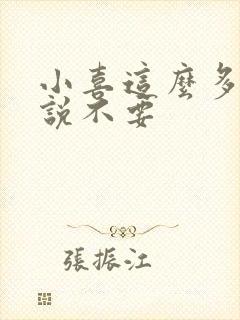 小喜這麼多
說不要
張振江